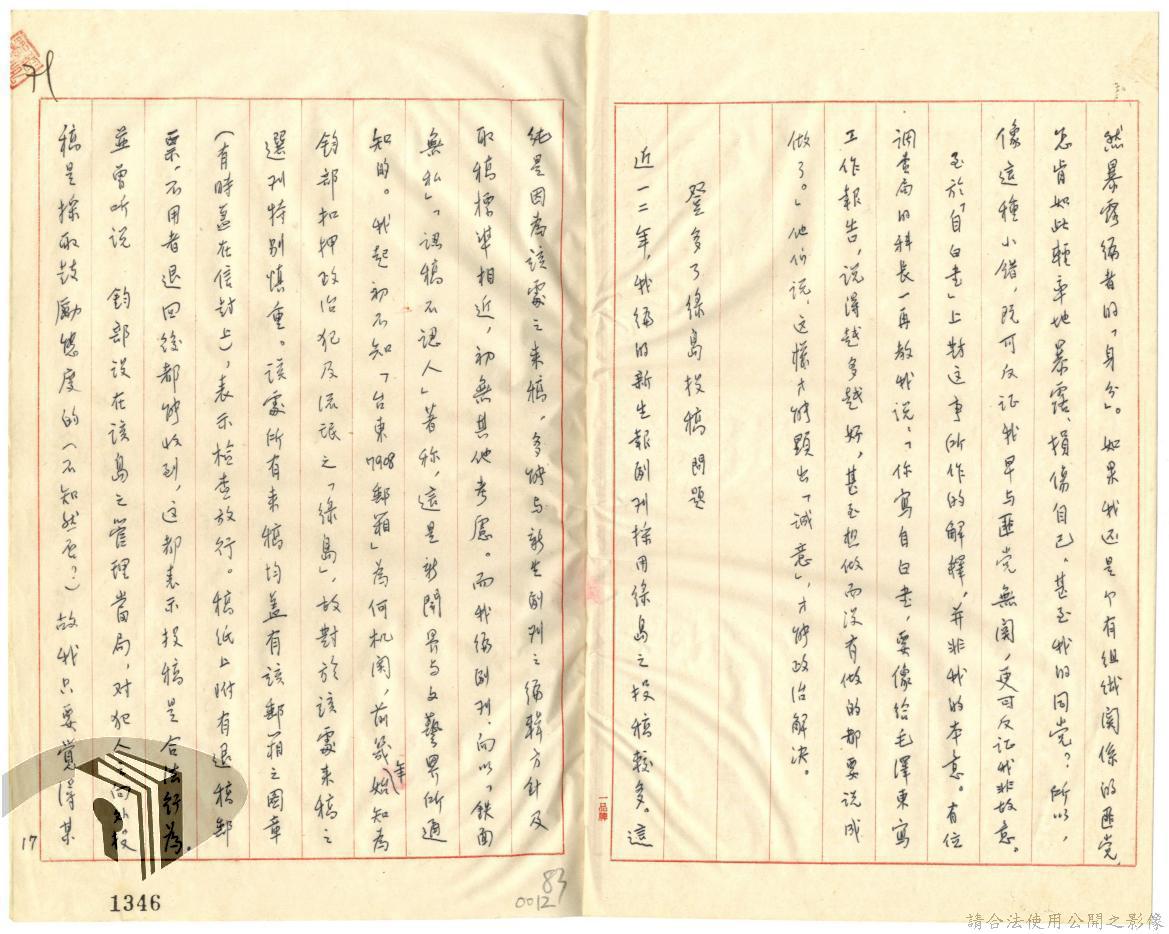 然暴露编者的「身分」。如果我还是个有组织関係的匪党,
怎肯如此輕率地暴露,損傷自己,甚至我的同党?所以,
像這種小错,既可反证我早与匪党無関,更可反证我非故意。
至於「自白书」上對这事所作的解釋,并非我的本意。有位
調查局的科長一再教我说:「你寫自白书,要像给毛澤東寫
工作報告,说得越多越好,甚至想做而没有做的都要说成
做了。」他们说,这樣才能顯出「诚意」,才能政治解决。
登多了绿島投稿問题
近一二年,我编的新生報副刊採用绿島之投稿較多。這
純是因為該處之来稿,多能与新生副刊之编輯方針及
取稿標準相近,初無其他考慮。而我编副刊,向以「铁面
無私」「認稿不認人」著称,這是新聞界与文藝界所通
知的。我起初不知「台東7908郵箱」為何机関,前幾年始知為
鈞部扣押政治犯及流氓之「绿島」,故對於該處来稿之
選刊特别慎重。該處所有来稿均蓋有該郵箱之圖章
(有時蓋在信封上),表示检查放行。稿纸上附有退稿郵
票,不用者退回後都能收到,这都表示投稿是合法行為。
並曾听说 鈞部設在該島之管理當局,对犯人之向外投
稿是採取鼓勵態度的(不知然否?)故我只要覺得某
17
1346
83
0012
一品牌
請合法使用公開之影像